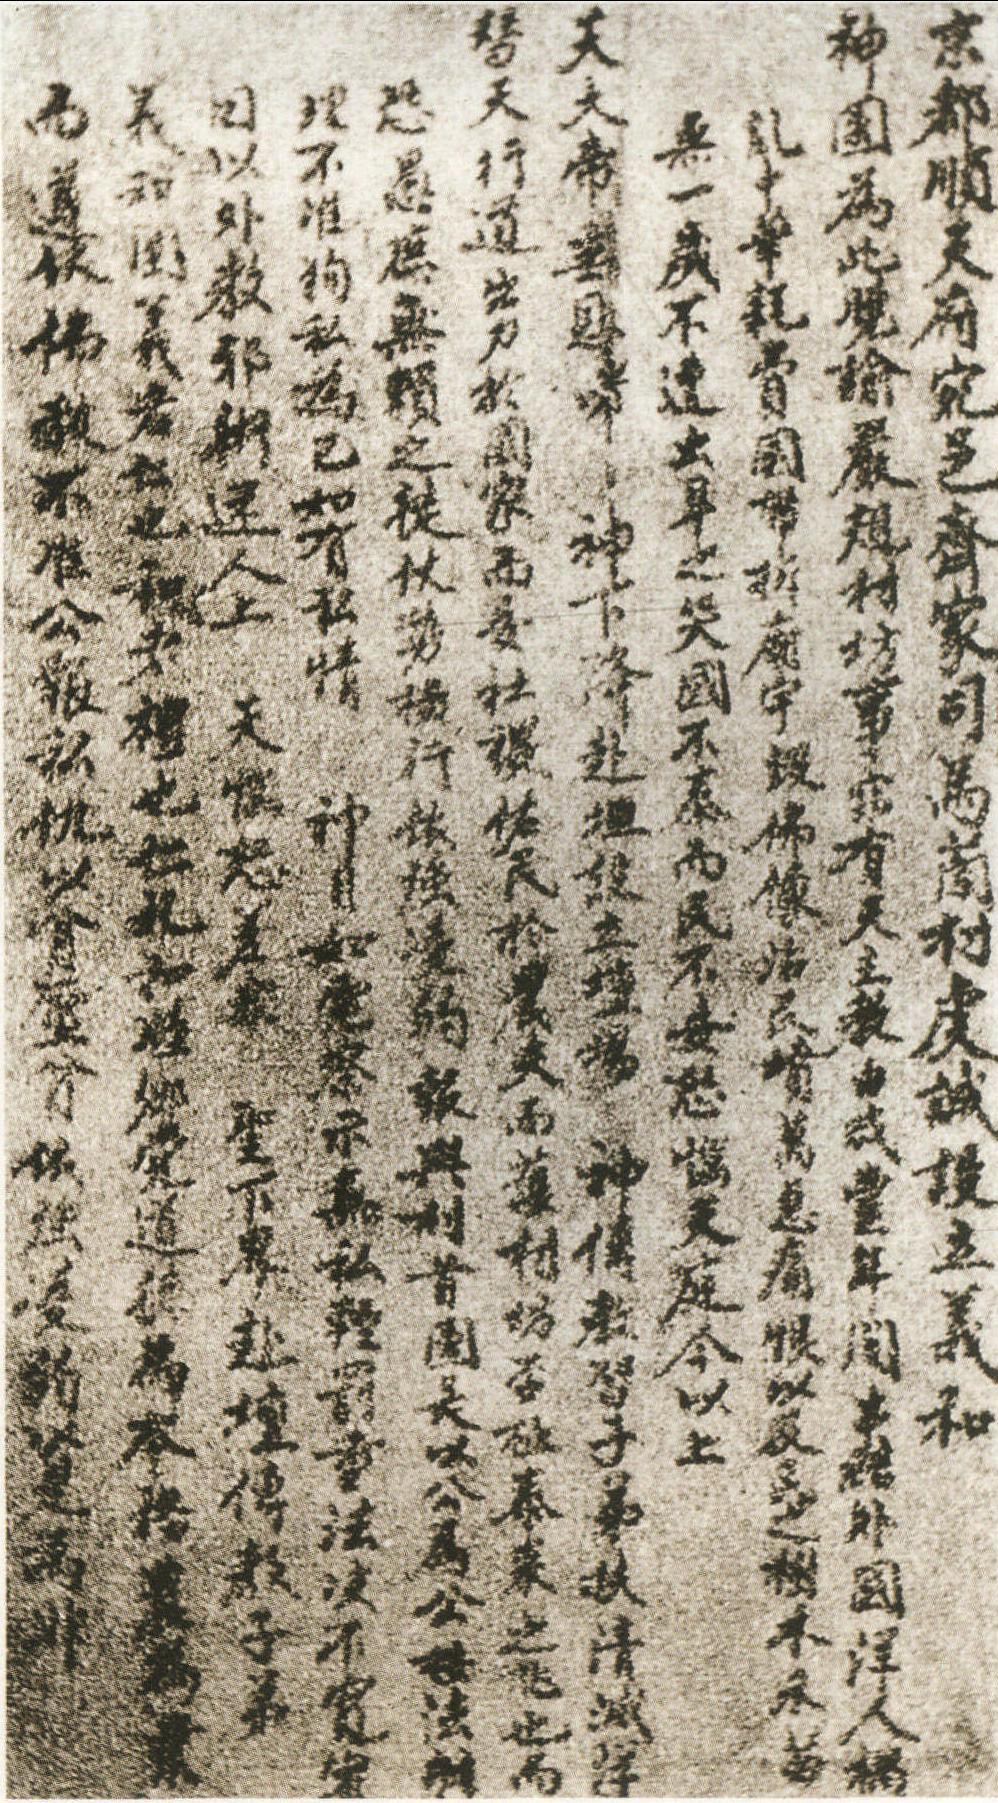 京都順天府宛邑齊家司馬蘭村虔誠設立義和
神團為此曉諭嚴規村坊事玆有天主教由咸豐年間串結外國洋人禍
亂中華耗費國帑拆廟宇毀佛像占民墳萬惡痛恨以及民之樹木禾苗
無一歲不遭虫旱之災國不泰而民不安怒惱天庭今以上
天大帝垂恩諸神下降赴壇設立壇場神傳教習子弟扶清滅洋
替天行道出力於國家而安社稷佑民於農夫而護村坊否極泰來之兆也而
恐愚庶無賴之徒仗勢橫行依強凌弱報與刊首團長以公為公母法辦
理不准徇私為己如有私情神目如電察示無私輕罰重法決不寬宥
因以外教邪術迷人上天惟怒差眾聖下界赴壇傳教子弟
義和團義者仁也和者禮也仁禮和睦鄉黨道德為本務農為業
而遵依佛教不准公報私仇以富壓貧依強凌弱是非